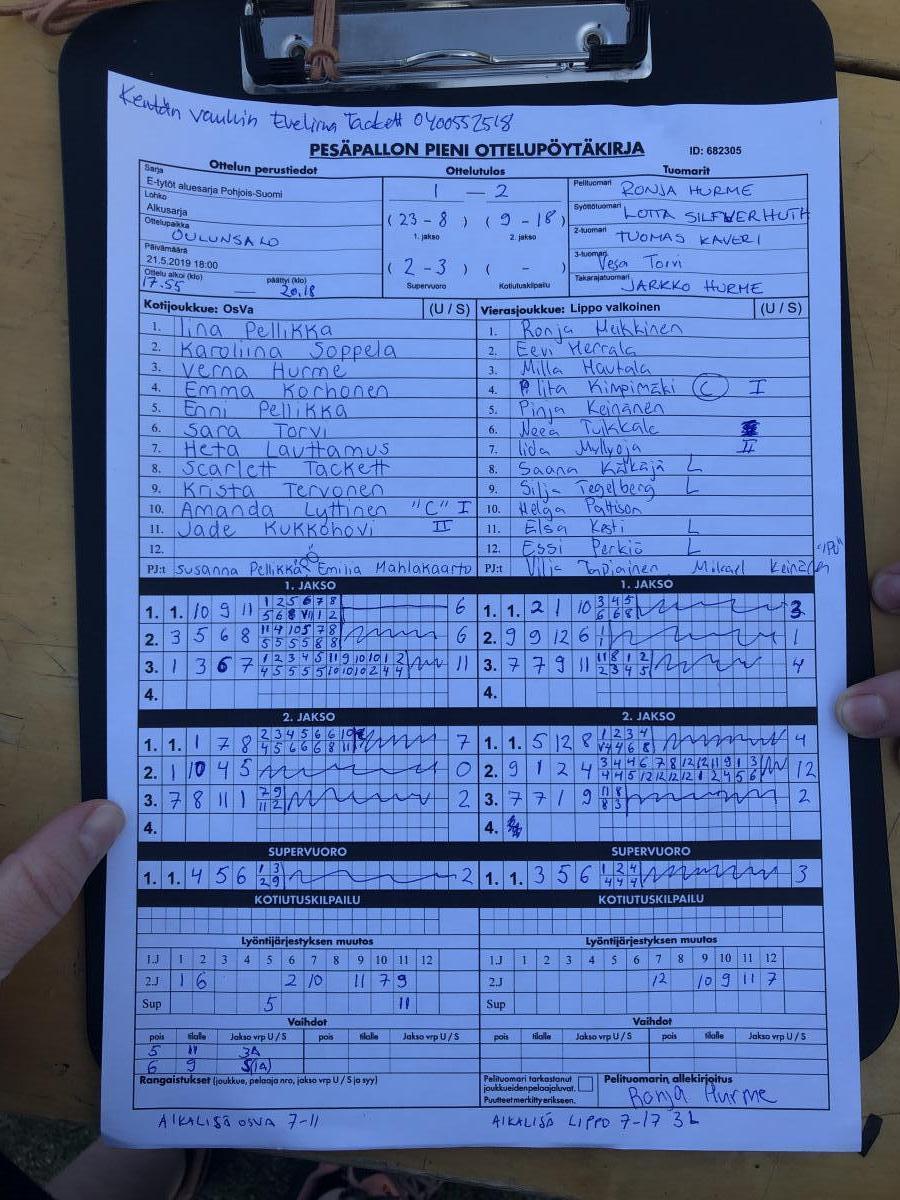 Kentän vaullin Eveliina Tackett 0400552518
PESÄPALLON PIENI OTTELUPÖYTÄKIRJA ID: 682305
Ottelun perustiedot Ottelutulos Tuomarit
Sarja
E-tytöt aluesarja Pohjois-Suomi
Lohko
Alkusarja
Ottelupaikka
OULUNSALO
Päivämäärä
21.5.2019 18:00
Ottelu alkoi (klo) päättyi (klo)
17.55 — 20.18
1 — 2
( 23 - 8 ) ( 9 - 18 )
1. jakso 2. jakso
( 2 - 3 ) ( - )
Supervuoro Kotiutuskilpailu
Pelituomari RONJA HURME
Syöttötuomari LOTTA SILFVERHUTH
2-tuomari TUOMAS KAVERI
3-tuomari Vesa Torvi
Takarajatuomari JARKKO HURME
Kotijoukkue: OsVa (U / S)
1. Iina Pellikka
2. Karoliina Soppela
3. Verna Hurme
4. Emma Korhonen
5. Enni Pellikka
6. Sara Torvi
7. Heta Lauttamus
8. Scarlett Tackett
9. Krista Tervonen
10. Amanda Lyttinen "C" I
11. Jade Kukkohovi II
12.
PJ:t Susanna Pellikka Emilia Mahlakaarto
Vierasjoukkue: Lippo valkoinen (U / S)
1. Ronja Meikkinen
2. Eevi Herrala
3. Milla Hautala
4. Alita Kimpimäki C I
5. Pinja Keinänen
6. Neea Tuikkala
7. Iida Myllyoja II
8. Saana Käkäjä L
9. Silja Tegelberg L
10. Helga Pattison
11. Elsa Kesti L
12. Essi Perkiö L
PJ:t Vilja Tapiainen Mikael Keinänen "IPU"
1. JAKSO
1. 1. 10 9 11 1 2 5 6 7 8 6
2. 3 5 6 8 11 4 10 5 7 8 6
5 5 5 5 8 8
3. 1 3 6 7 1 2 3 4 5 11 9 10 10 1 2 11
4 5 5 5 5 10 10 10 2 4 4
4.
1. JAKSO
1. 1. 2 1 10 3 4 5 3
6 6 8
2. 9 9 12 6 1
3. 7 7 9 11 11 8 1 2 4
2 3 4 5
4.
2. JAKSO
1. 1. 1 7 8 2 3 4 5 6 6 10 7
4 5 6 6 6 8 11
2. 1 10 4 5 0
3. 7 8 11 1 7 9 2
11 2
4.
2. JAKSO
1. 1. 5 12 8 1 2 3 4 4
4 4 6 8
2. 9 1 2 4 3 4 4 6 7 8 12 12 11 9 1 3 12
4 4 5 12 12 12 12 1 2 4 5 6
3. 7 7 1 9 11 8 2
8 3
4.
SUPERVUORO
1. 1. 4 5 6 1 3 2
2 9
SUPERVUORO
1. 1. 3 5 6 1 2 4 3
4 4 4
KOTIUTUSKILPAILU
KOTIUTUSKILPAILU
Lyöntijärjestyksen muutos
1.J 1 2 3 4 5 6 7 8 9 10 11 12
2.J 1 6 2 10 11 7 9
Sup 5 11
Lyöntijärjestyksen muutos
1.J 1 2 3 4 5 6 7 8 9 10 11 12
2.J 12 10 9 11 7
Sup
Vaihdot
pois tilalle Jakso vrp U / S pois tilalle Jakso vrp U / S
5 11 3A
6 9 S(1A)
Vaihdot
pois tilalle Jakso vrp U / S pois tilalle Jakso vrp U / S
Rangaistukset (joukkue, pelaaja nro, jakso vrp U / S ja syy)
Pelituomari tarkastanut
joukkueiden pelaajaluvat.
Puutteet merkitty erikseen.
Pelituomarin allekirjoitus
Ronja Hurme
AIKALISÄ OSVA 7-11 AIKALISÄ LIPPO 7-17 3L